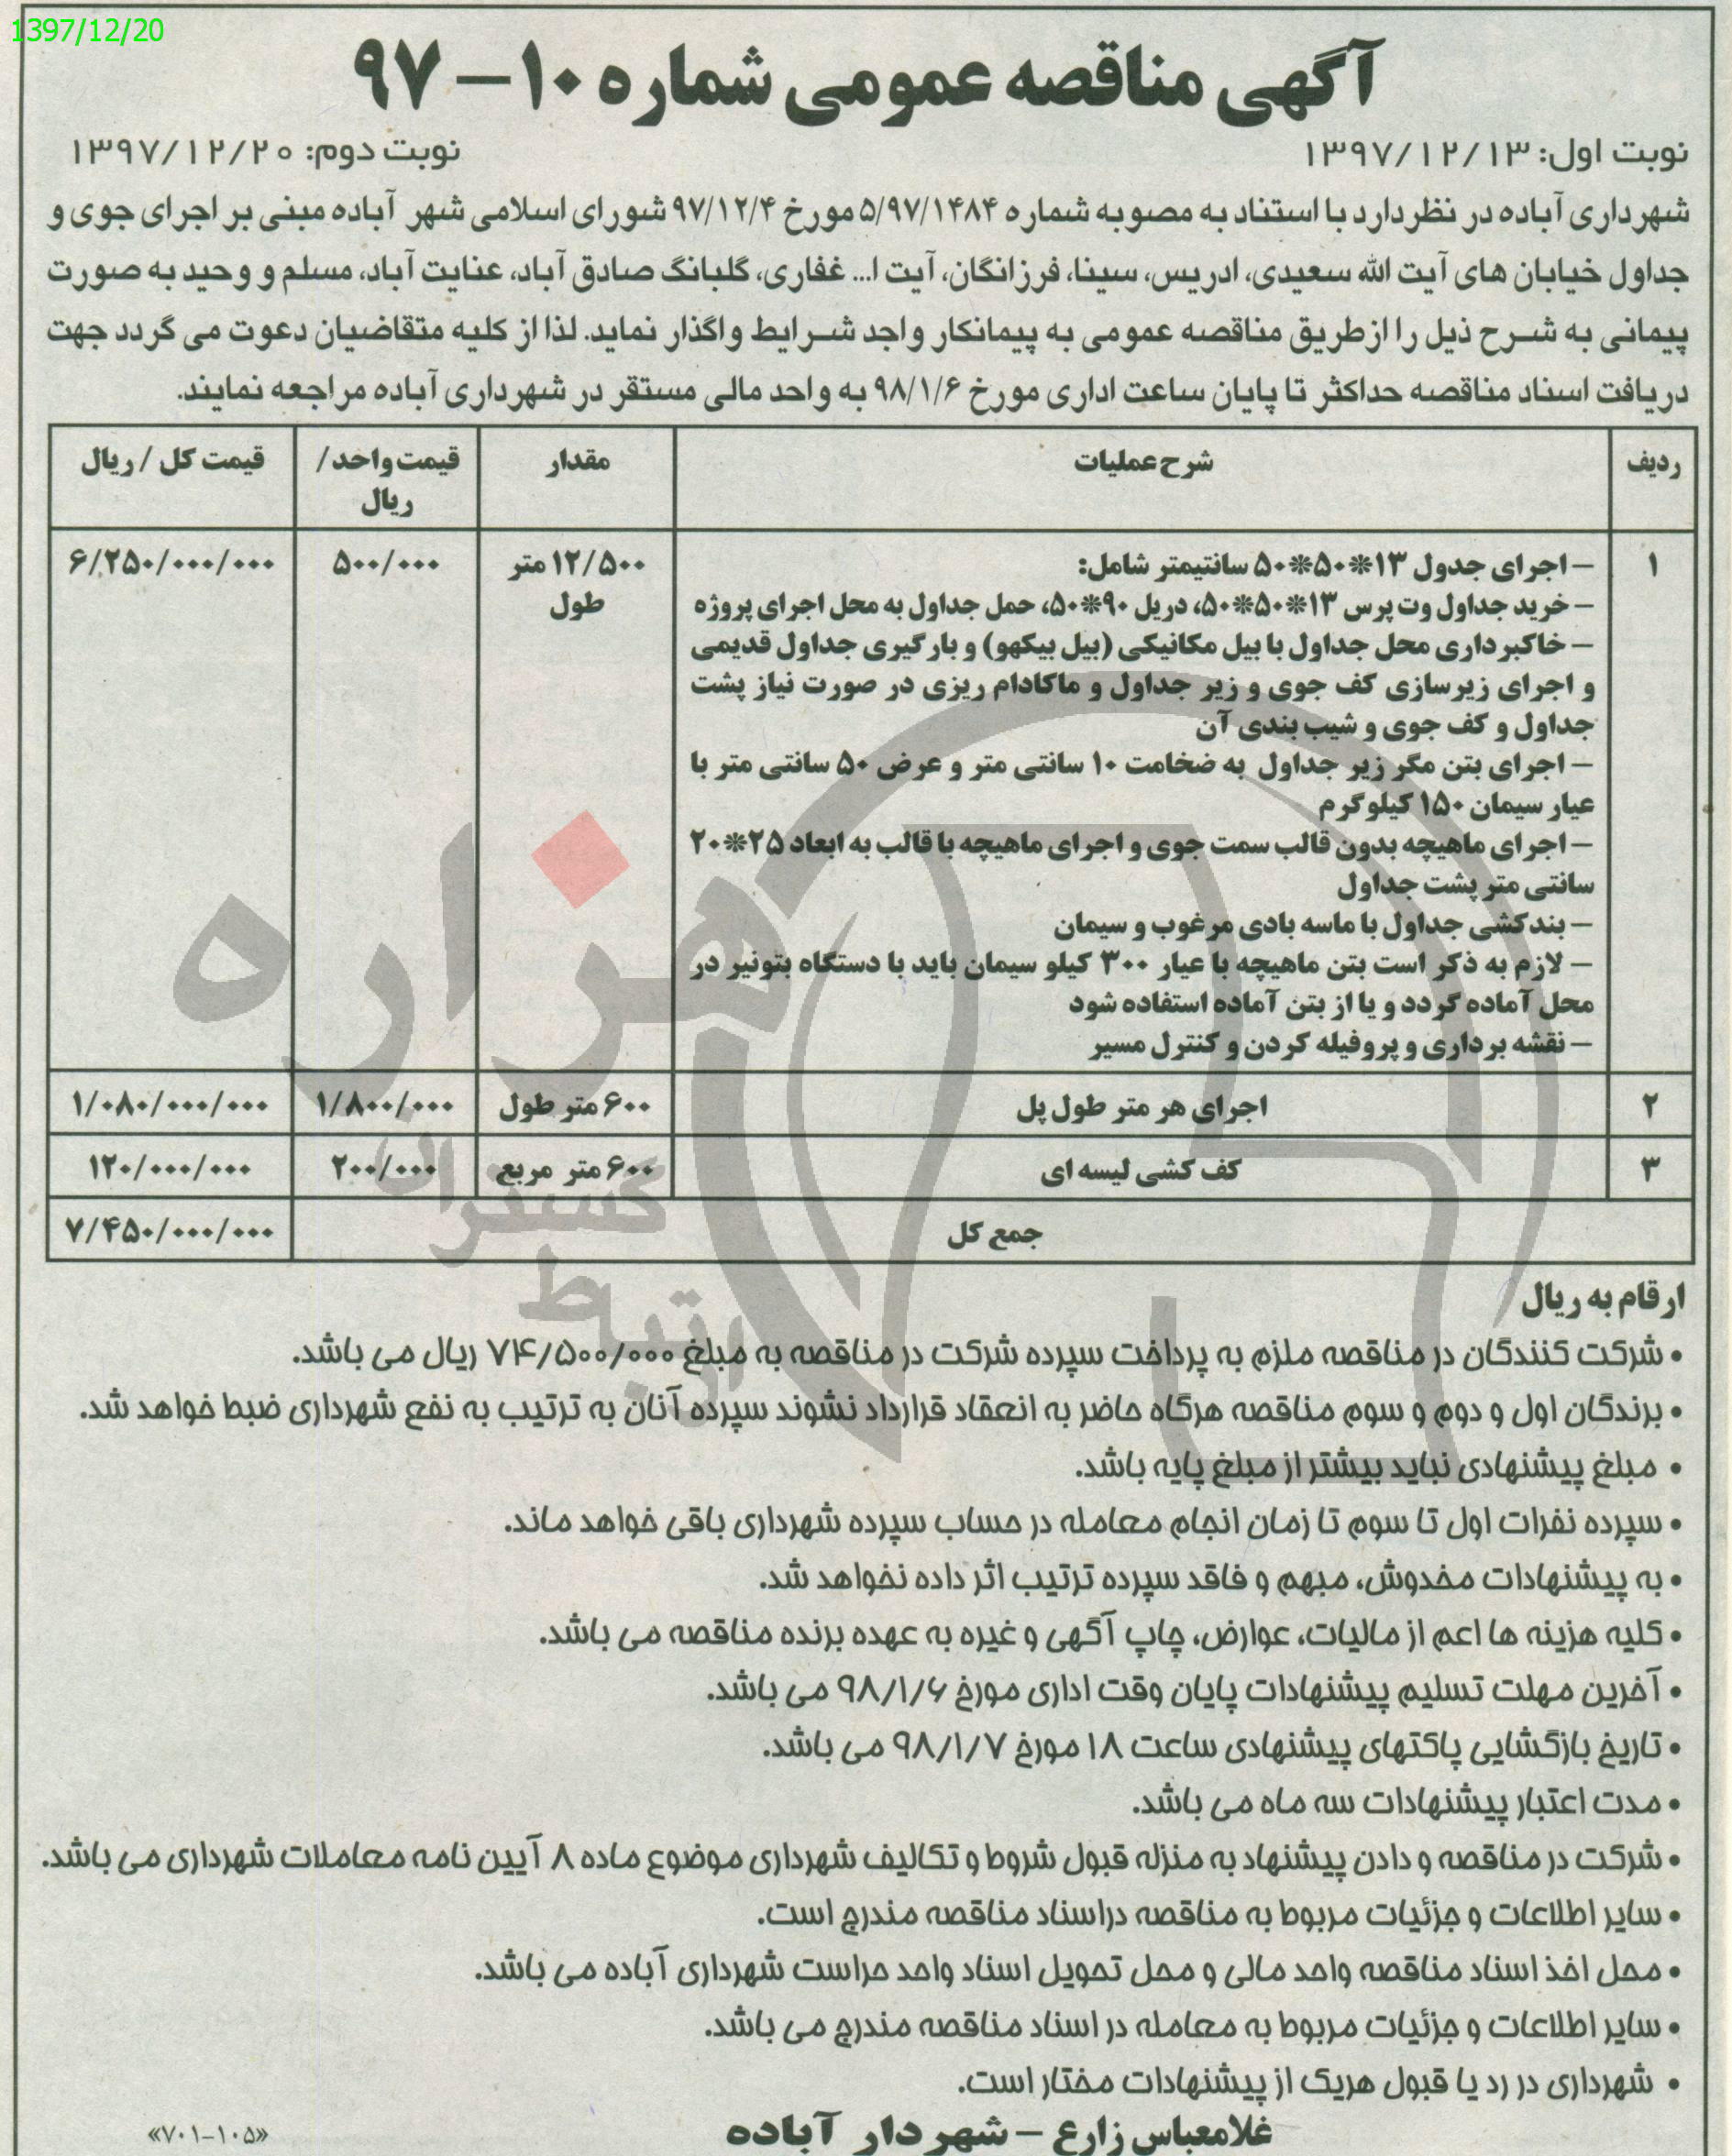 1397/12/20
آگهی مناقصه عمومی شماره ۱۰ – ۹۷
نوبت اول: ۱۳۹۷/۱۲/۱۳
نوبت دوم: ۱۳۹۷/۱۲/۲۰
شهرداری آباده در نظر دارد با استناد به مصوبه شماره ۵/۹۷/۱۴۸۴ مورخ ۹۷/۱۲/۴ شورای اسلامی شهر آباده مبنی بر اجرای جوی و
جداول خیابان های آیت الله سعیدی، ادریس، سینا، فرزانگان، آیت ا... غفاری، گلبانگ صادق آباد، عنایت آباد، مسلم و وحید به صورت
پیمانی به شرح ذیل را از طریق مناقصه عمومی به پیمانکار واجد شرایط واگذار نماید. لذا از کلیه متقاضیان دعوت می گردد جهت
دریافت اسناد مناقصه حداکثر تا پایان ساعت اداری مورخ ۹۸/۱/۶ به واحد مالی مستقر در شهرداری آباده مراجعه نمایند.
ردیف شرح عملیات مقدار قیمت واحد/ قیمت کل / ریال
ریال
۱ – اجرای جدول ۱۳*۵۰*۵۰ سانتیمتر شامل: ۱۲/۵۰۰ متر ۵۰۰/۰۰۰ ۶/۲۵۰/۰۰۰/۰۰۰
– خرید جداول وت پرس ۱۳*۵۰*۵۰، دریل ۹۰*۵۰، حمل جداول به محل اجرای پروژه طول
– خاکبرداری محل جداول با بیل مکانیکی (بیل بیکهو) و بارگیری جداول قدیمی
و اجرای زیرسازی کف جوی و زیر جداول و ماکادام ریزی در صورت نیاز پشت
جداول و کف جوی و شیب بندی آن
– اجرای بتن مگر زیر جداول به ضخامت ۱۰ سانتی متر و عرض ۵۰ سانتی متر با
عیار سیمان ۱۵۰ کیلوگرم
– اجرای ماهیچه بدون قالب سمت جوی و اجرای ماهیچه با قالب به ابعاد ۲۵*۲۰
سانتی متر پشت جداول
– بندکشی جداول با ماسه بادی مرغوب و سیمان
– لازم به ذکر است بتن ماهیچه با عیار ۳۰۰ کیلو سیمان باید با دستگاه بتونیر در
محل آماده گردد و یا از بتن آماده استفاده شود
– نقشه برداری و پروفیله کردن و کنترل مسیر
۲ اجرای هر متر طول پل ۶۰۰ متر طول ۱/۸۰۰/۰۰۰ ۱/۰۸۰/۰۰۰/۰۰۰
۳ کف کشی لیسه ای ۶۰۰ متر مربع ۲۰۰/۰۰۰ ۱۲۰/۰۰۰/۰۰۰
جمع کل ۷/۴۵۰/۰۰۰/۰۰۰
هزاره
گستران
ارتباط
ارقام به ریال
• شرکت کنندگان در مناقصه ملزم به پرداخت سپرده شرکت در مناقصه به مبلغ ۷۴/۵۰۰/۰۰۰ ریال می باشد.
• برندگان اول و دوم و سوم مناقصه هرگاه حاضر به انعقاد قرارداد نشوند سپرده آنان به ترتیب به نفع شهرداری ضبط خواهد شد.
• مبلغ پیشنهادی نباید بیشتر از مبلغ پایه باشد.
• سپرده نفرات اول تا سوم تا زمان انجام معامله در حساب سپرده شهرداری باقی خواهد ماند.
• به پیشنهادات مخدوش، مبهم و فاقد سپرده ترتیب اثر داده نخواهد شد.
• کلیه هزینه ها اعم از مالیات، عوارض، چاپ آگهی و غیره به عهده برنده مناقصه می باشد.
• آخرین مهلت تسلیم پیشنهادات پایان وقت اداری مورخ ۹۸/۱/۶ می باشد.
• تاریخ بازگشایی پاکتهای پیشنهادی ساعت ۱۸ مورخ ۹۸/۱/۷ می باشد.
• مدت اعتبار پیشنهادات سه ماه می باشد.
• شرکت در مناقصه و دادن پیشنهاد به منزله قبول شروط و تکالیف شهرداری موضوع ماده ۸ آیین نامه معاملات شهرداری می باشد.
• سایر اطلاعات و جزئیات مربوط به مناقصه دراسناد مناقصه مندرج است.
• محل اخذ اسناد مناقصه واحد مالی و محل تحویل اسناد واحد حراست شهرداری آباده می باشد.
• سایر اطلاعات و جزئیات مربوط به معامله در اسناد مناقصه مندرج می باشد.
• شهرداری در رد یا قبول هریک از پیشنهادات مختار است.
غلامعباس زارع – شهردار آباده
«۷۰۱-۱۰۵»